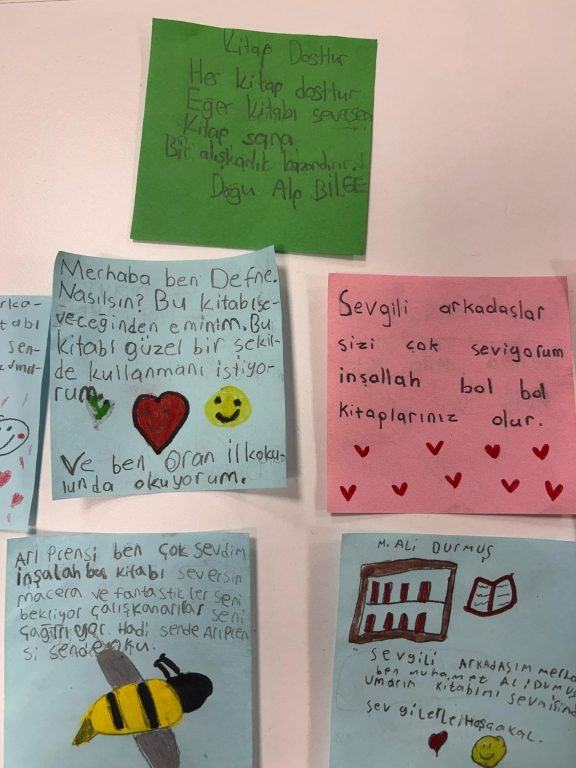 Kitap Dosttur
Her kitap dosttur
Eğer kitabı seversen
Kitap sana
Bir alışkanlık kazandırır.
Doğu Alp BİLGE
Merhaba ben Defne.
Nasılsın? Bu kitabı se-
veceğinden eminim. Bu
kitabı güzel bir şekil-
de kullanmanı istiyo-
rum.
Ve ben Oran ilkoku-
lunda okuyorum.
Sevgili arkadaşlar
sizi çok seviyorum
inşallah bol bol
kitaplarınız olur.
Arı Prensi ben çok sevdim
inşalah bu kitabı seversin
macera ve fantastikler seni
bekliyor çalışkan arılar seni
çağırıyor. Hadi sende Arı Pren-
si sende oku.
M. ALİ DURMUŞ
Sevgili ARKADAŞIM merha
ben muhamet ALİ DURMUŞ
umarım kitabımı
Sevgilerle! Hoşçakal.